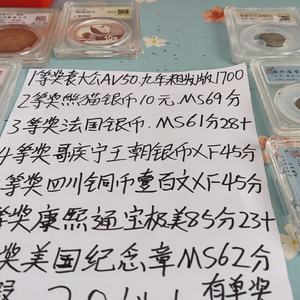 1等奖袁大公AV50.九年相发版1700
2等奖熊猫银币10元.MS69分
3等奖法国银币.MS61分28+
4等奖哥疾宁王朝银币XF45分
等奖四川铜币壹百文XF45分
等奖康熙通宝极美85分23+
奖美国纪念章MS62分
有单奖